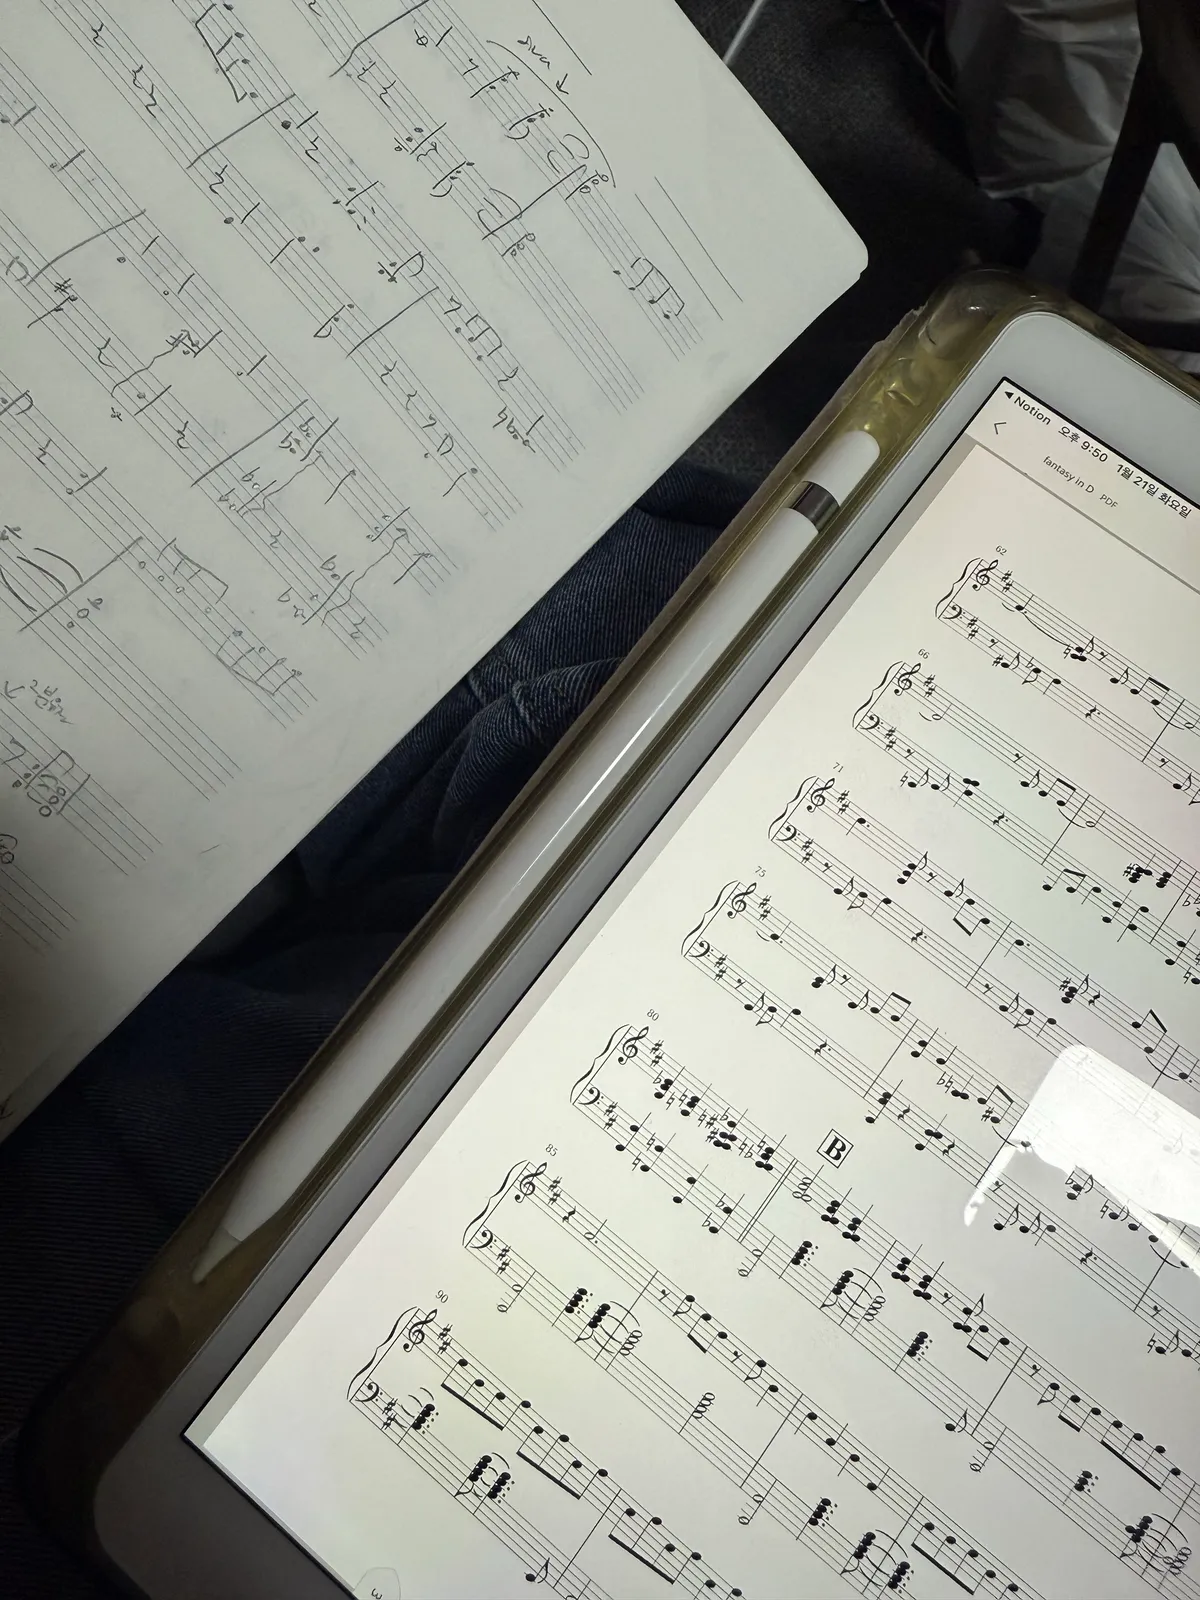 8va
◀ Notion 오후 9:50 1월 21일 화요일
fantasy in D PDF
62
66
71
75
80
B
85
90